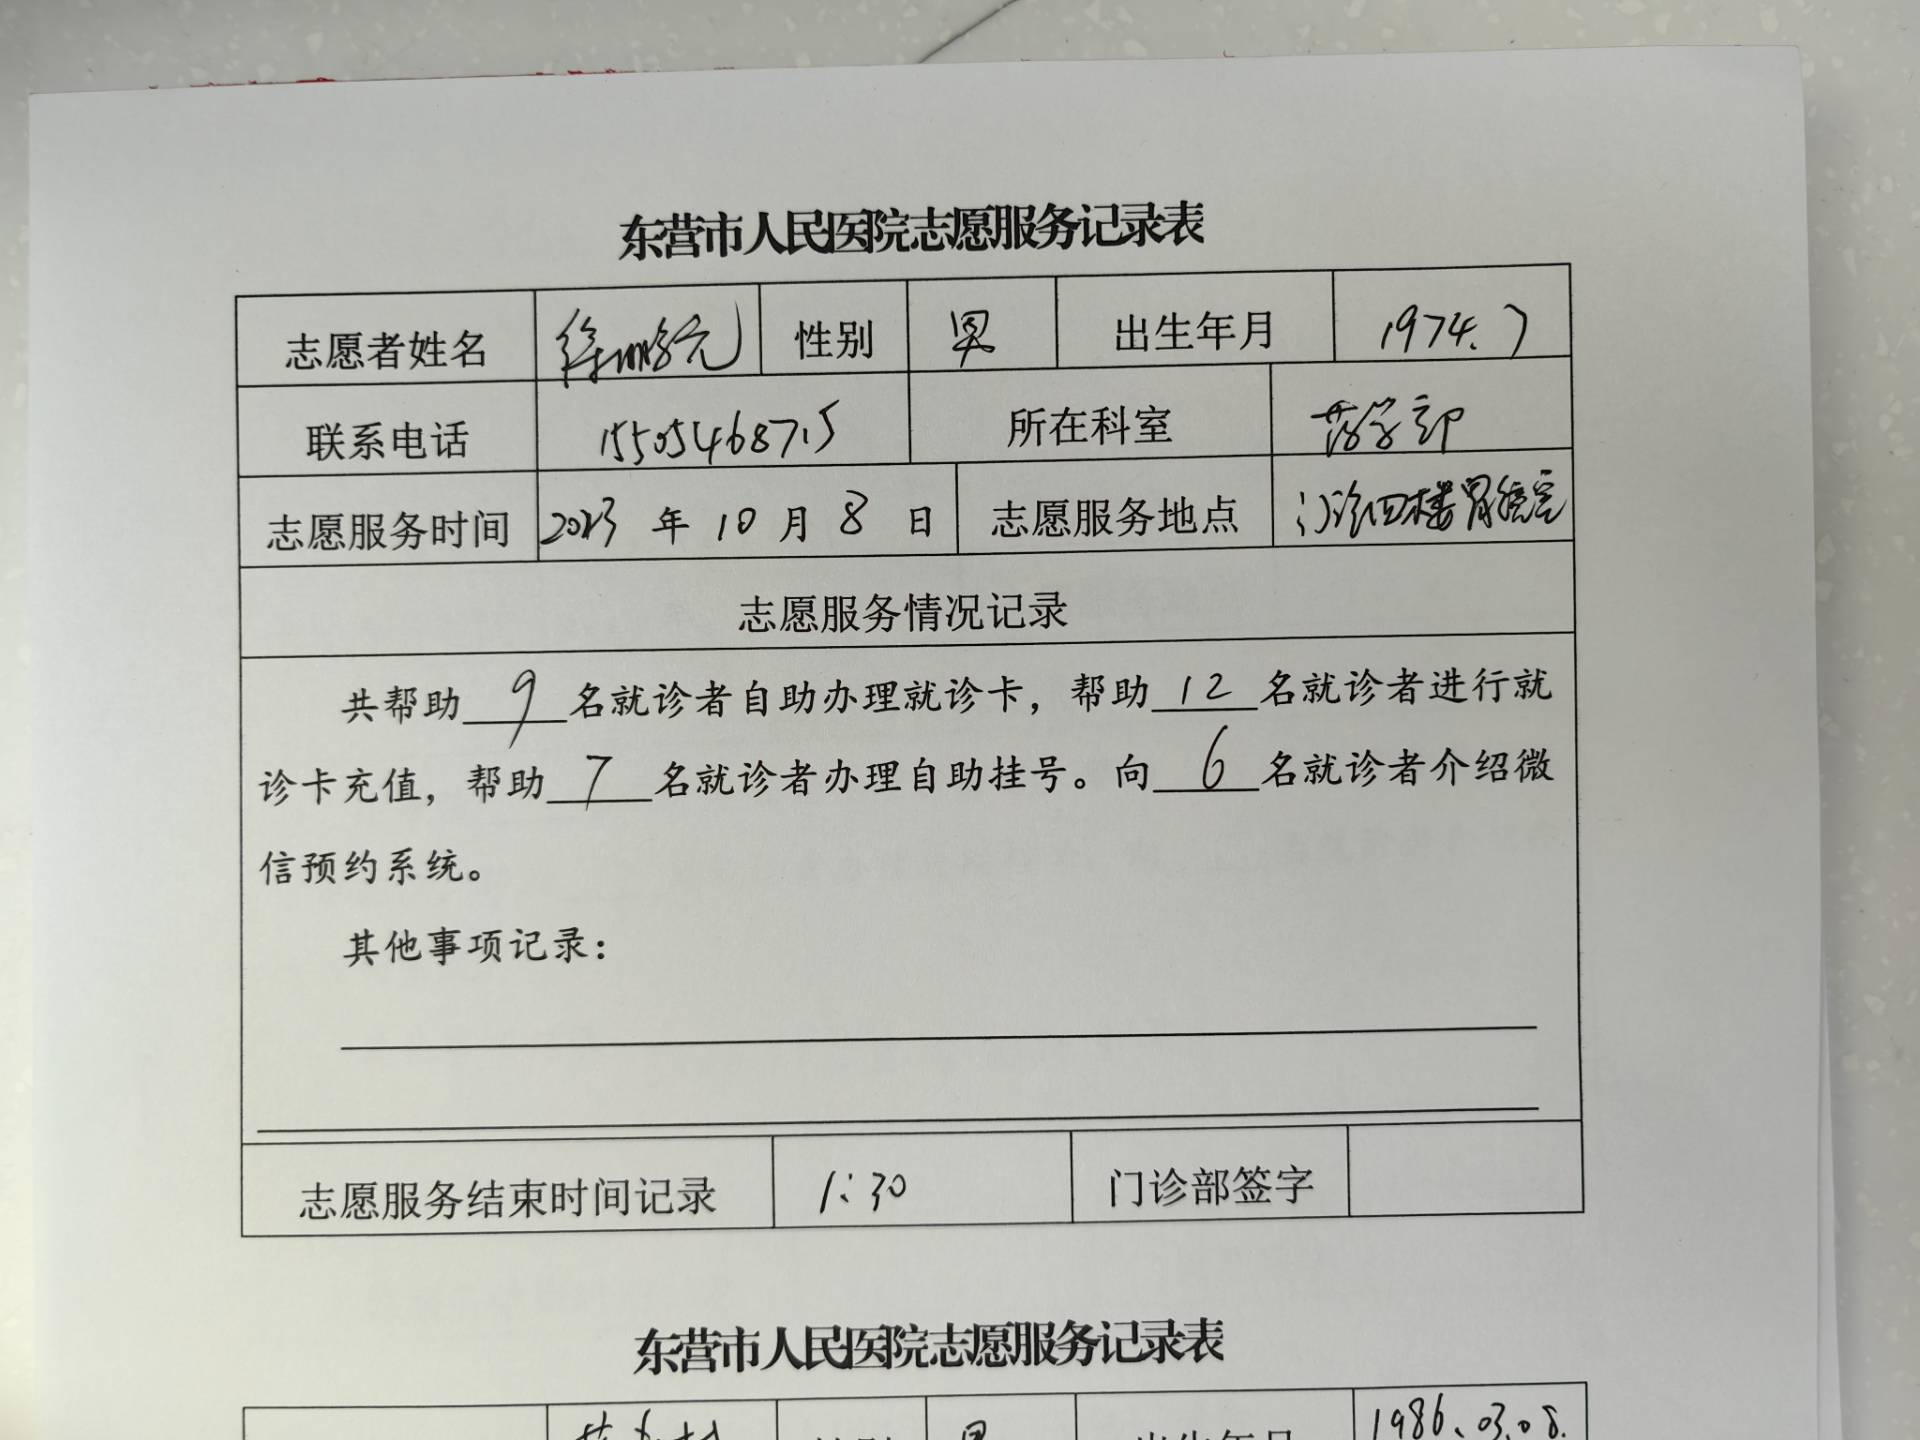 东营市人民医院志愿服务记录表
志愿者姓名 徐鹏元 性别 男 出生年月 1974.7
联系电话 15505468715 所在科室 药学部
志愿服务时间 2023 年 10 月 8 日 志愿服务地点 门诊四楼胃镜室
志愿服务情况记录
共帮助 9 名就诊者自助办理就诊卡，帮助 12 名就诊者进行就
诊卡充值，帮助 7 名就诊者办理自助挂号。向 6 名就诊者介绍微
信预约系统。
其他事项记录：
志愿服务结束时间记录 1:30 门诊部签字
东营市人民医院志愿服务记录表
男 1986.03.08.